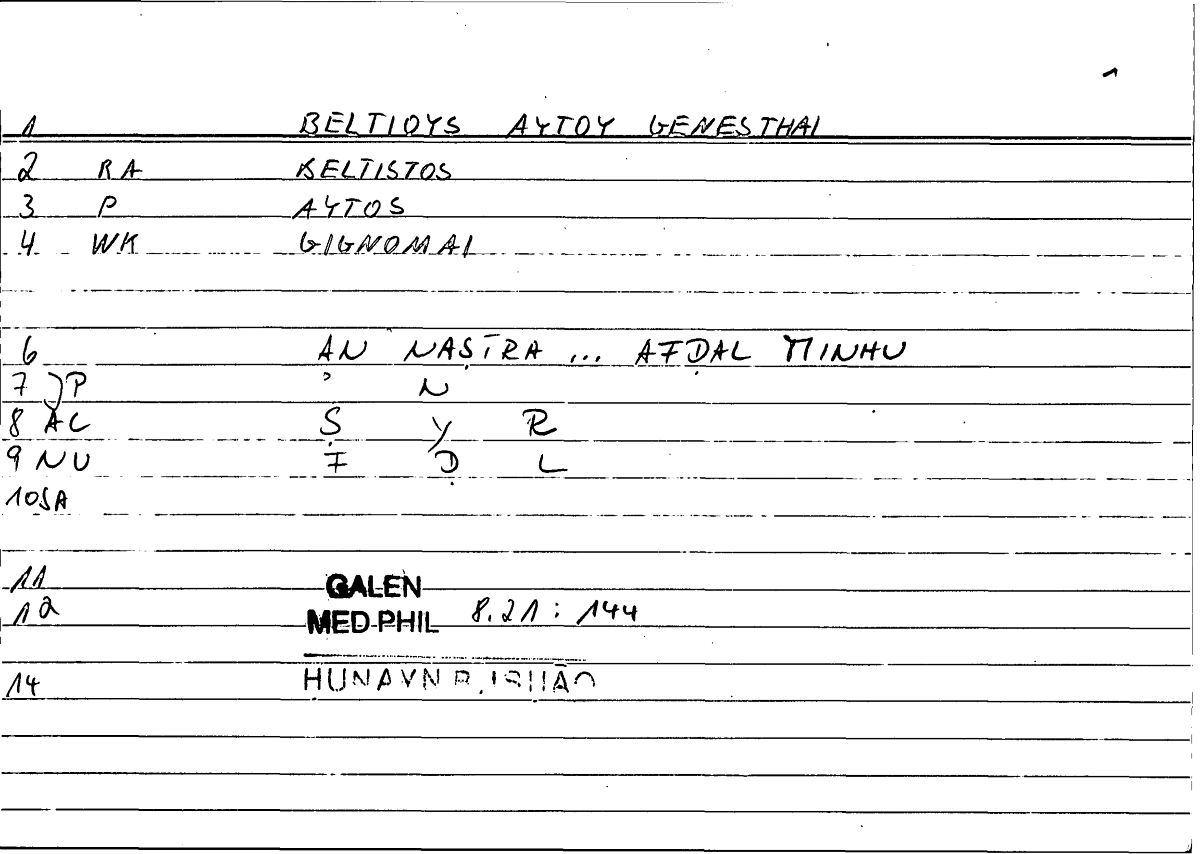 1 BELTIOYS AYTOY GENESTHAI
2 RA BELTISTOS
3 P AYTOS
4 WK GIGNOMAI
6 AN NAṢĪRA ... AFḌAL MINHU
7 JP ʾ N
8 AC Ṣ Y R
9 NU F Ḍ L
10 SA
11 GALEN
12 MED-PHIL 8.21 : 144
14 ḤUNAYN B. ISḤĀQ